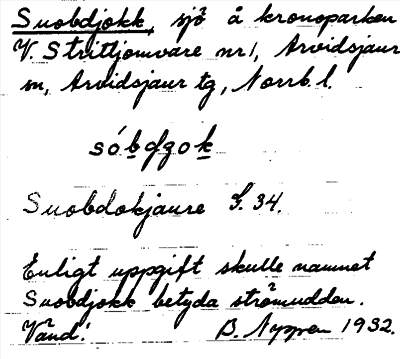 Suobdjokk, sjö å kronoparken
V. Strittjomvare nr 1, Arvidsjaur
sn, Arvidsjaur tg, Norrb. l.
Suobdokjaure G. 34.
Enligt uppgift skulle namnet
Suobdjokk betyda strömudden.
Vänd! B. Nyman 1932.